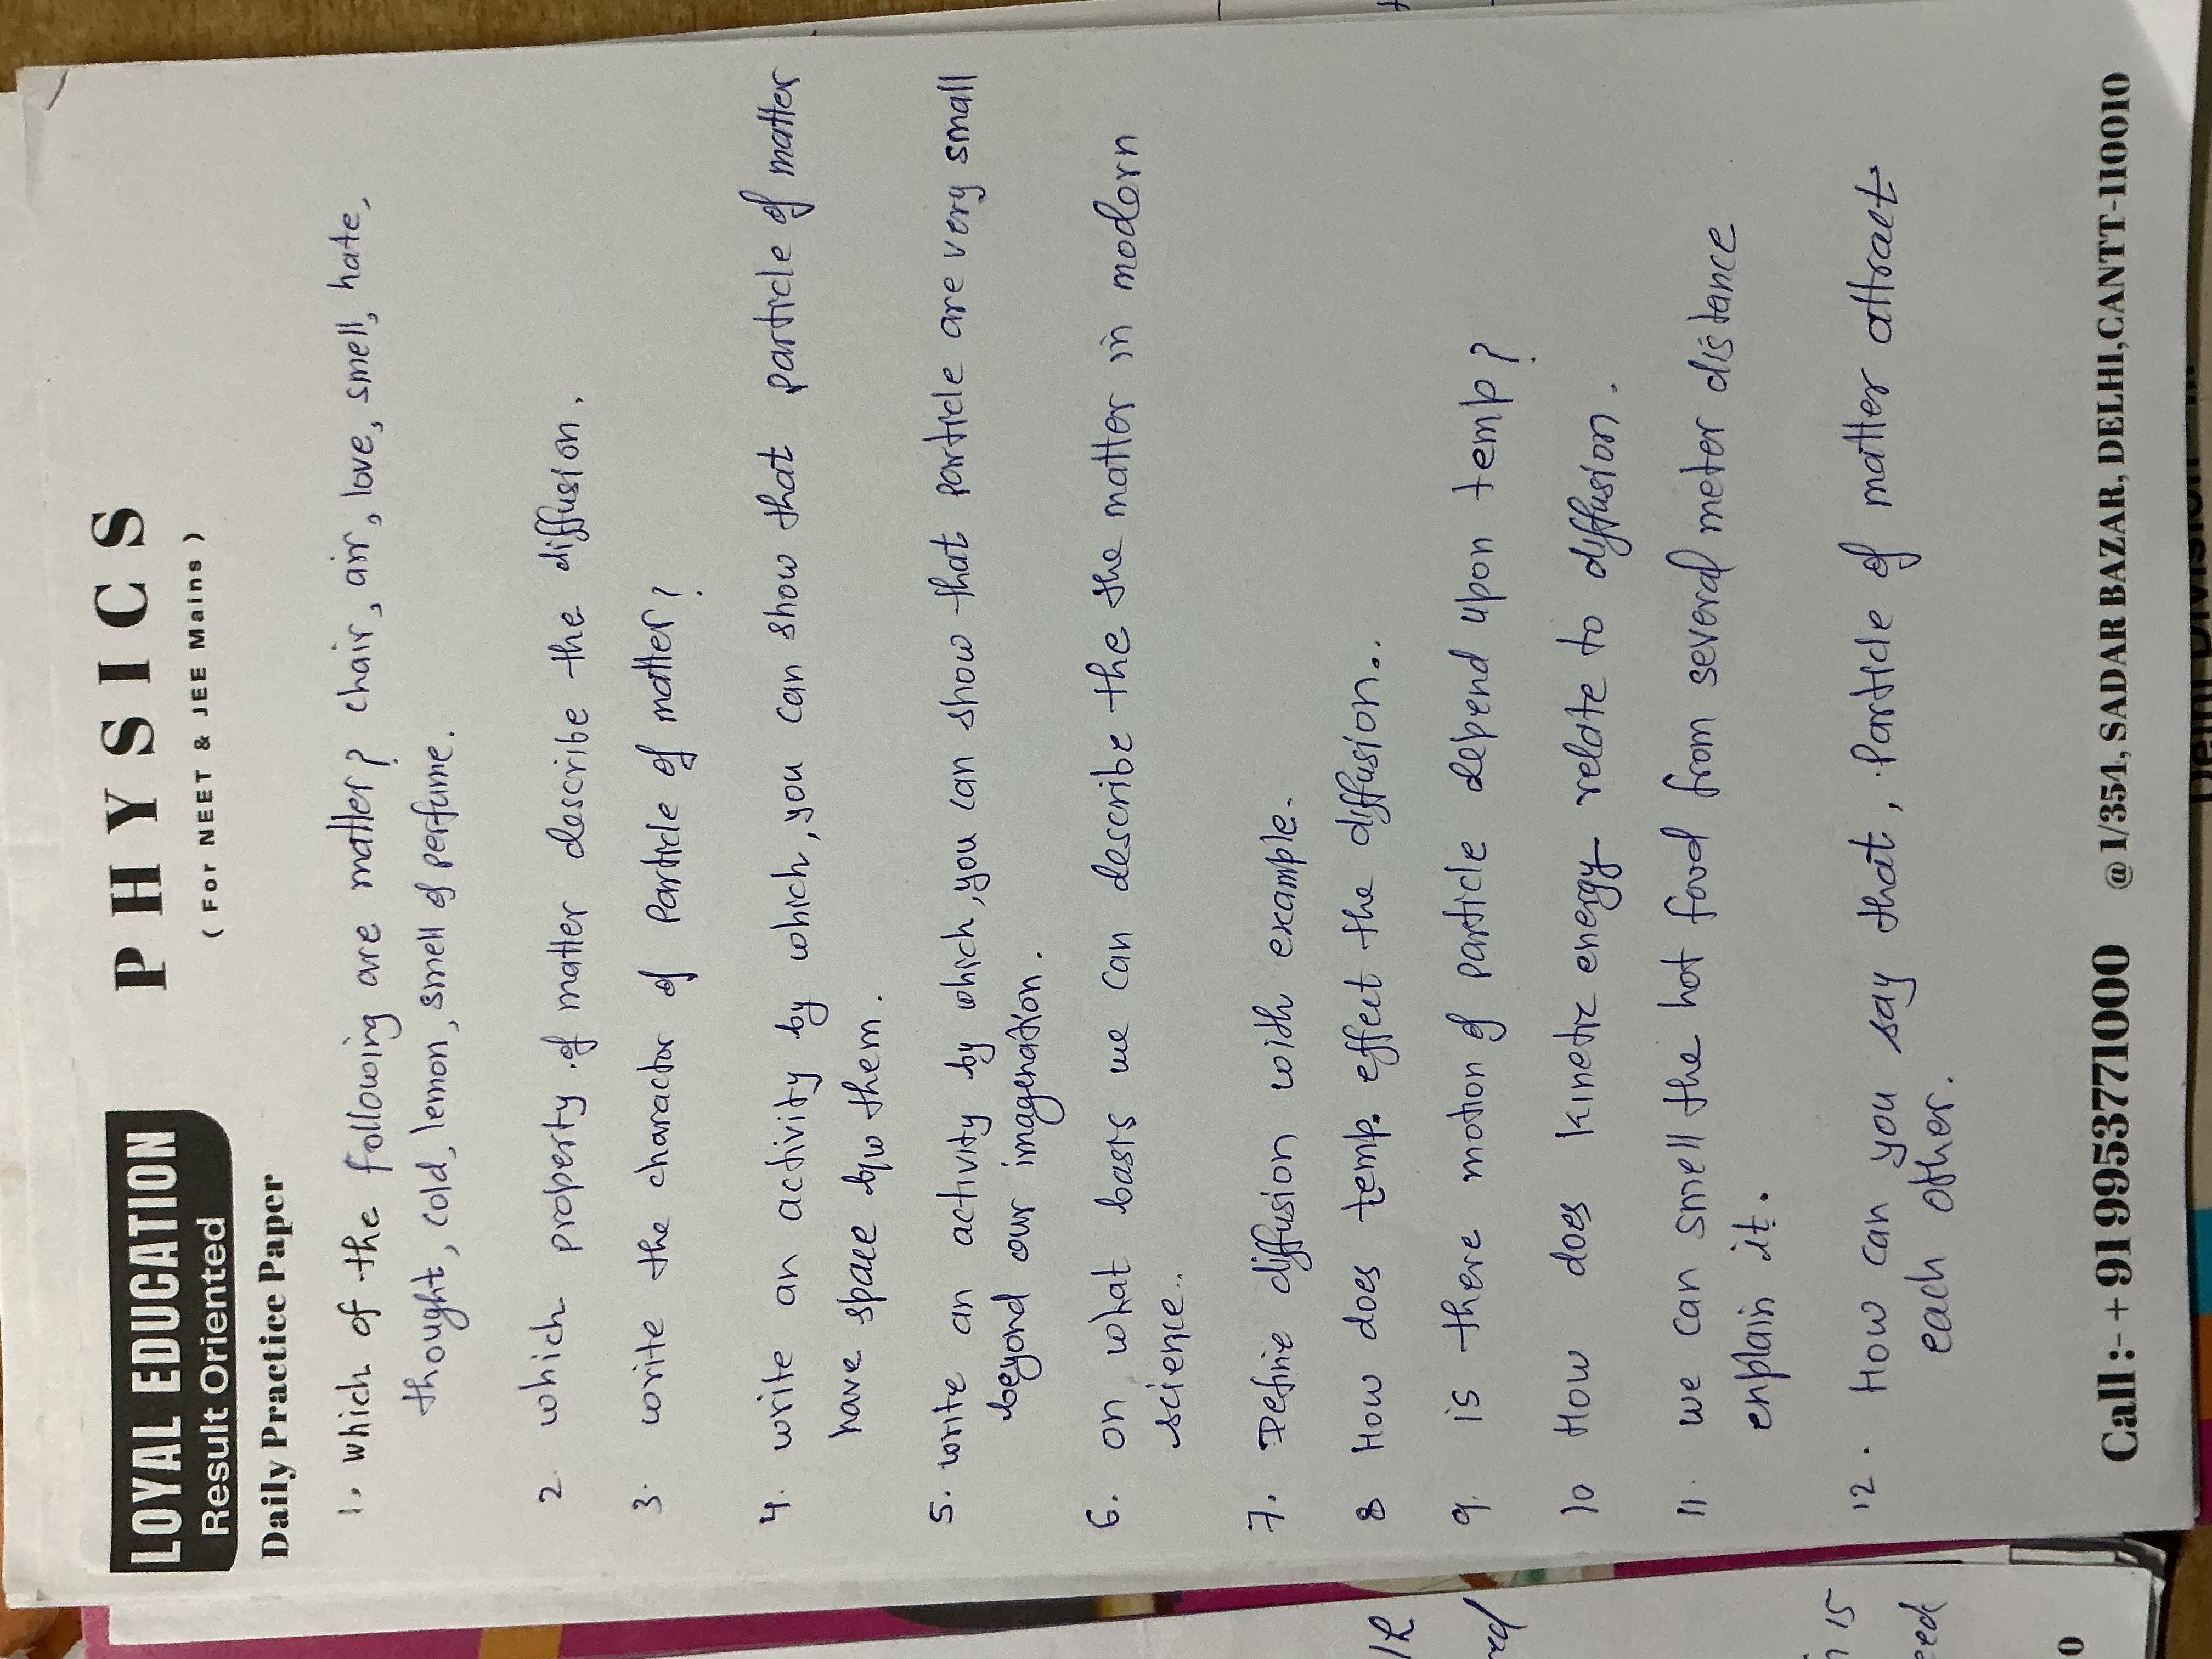 LOYAL EDUCATION
Result Oriented
PHYSICS
( For NEET & JEE Mains )
Daily Practice Paper
1. which of the following are matter? chair, air, love, smell, hate,
thought, cold, lemon, smell of perfume.
2. which property of matter describe the diffusion.
3. write the charactor of Particle of matter?
4. write an activity by which, you can show that particle of matter
have space b/w them.
5. write an activity by which, you can show that particle are very small
beyond our imagenation.
6. on what basis we can describe the the matter in modern
science..
7. Define diffusion with example.
8 How does temp. effect the diffusion..
9. is there motion of particle depend upon temp?
10 How does kinetic energy relate to diffusion.
11. we can smell the hot food from several meter distance
explain it.
12. How can you say that, Particle of matter attract
each other.
Call :- + 91 9953771000 @ 1/354, SADAR BAZAR, DELHI,CANTT-110010
15
0